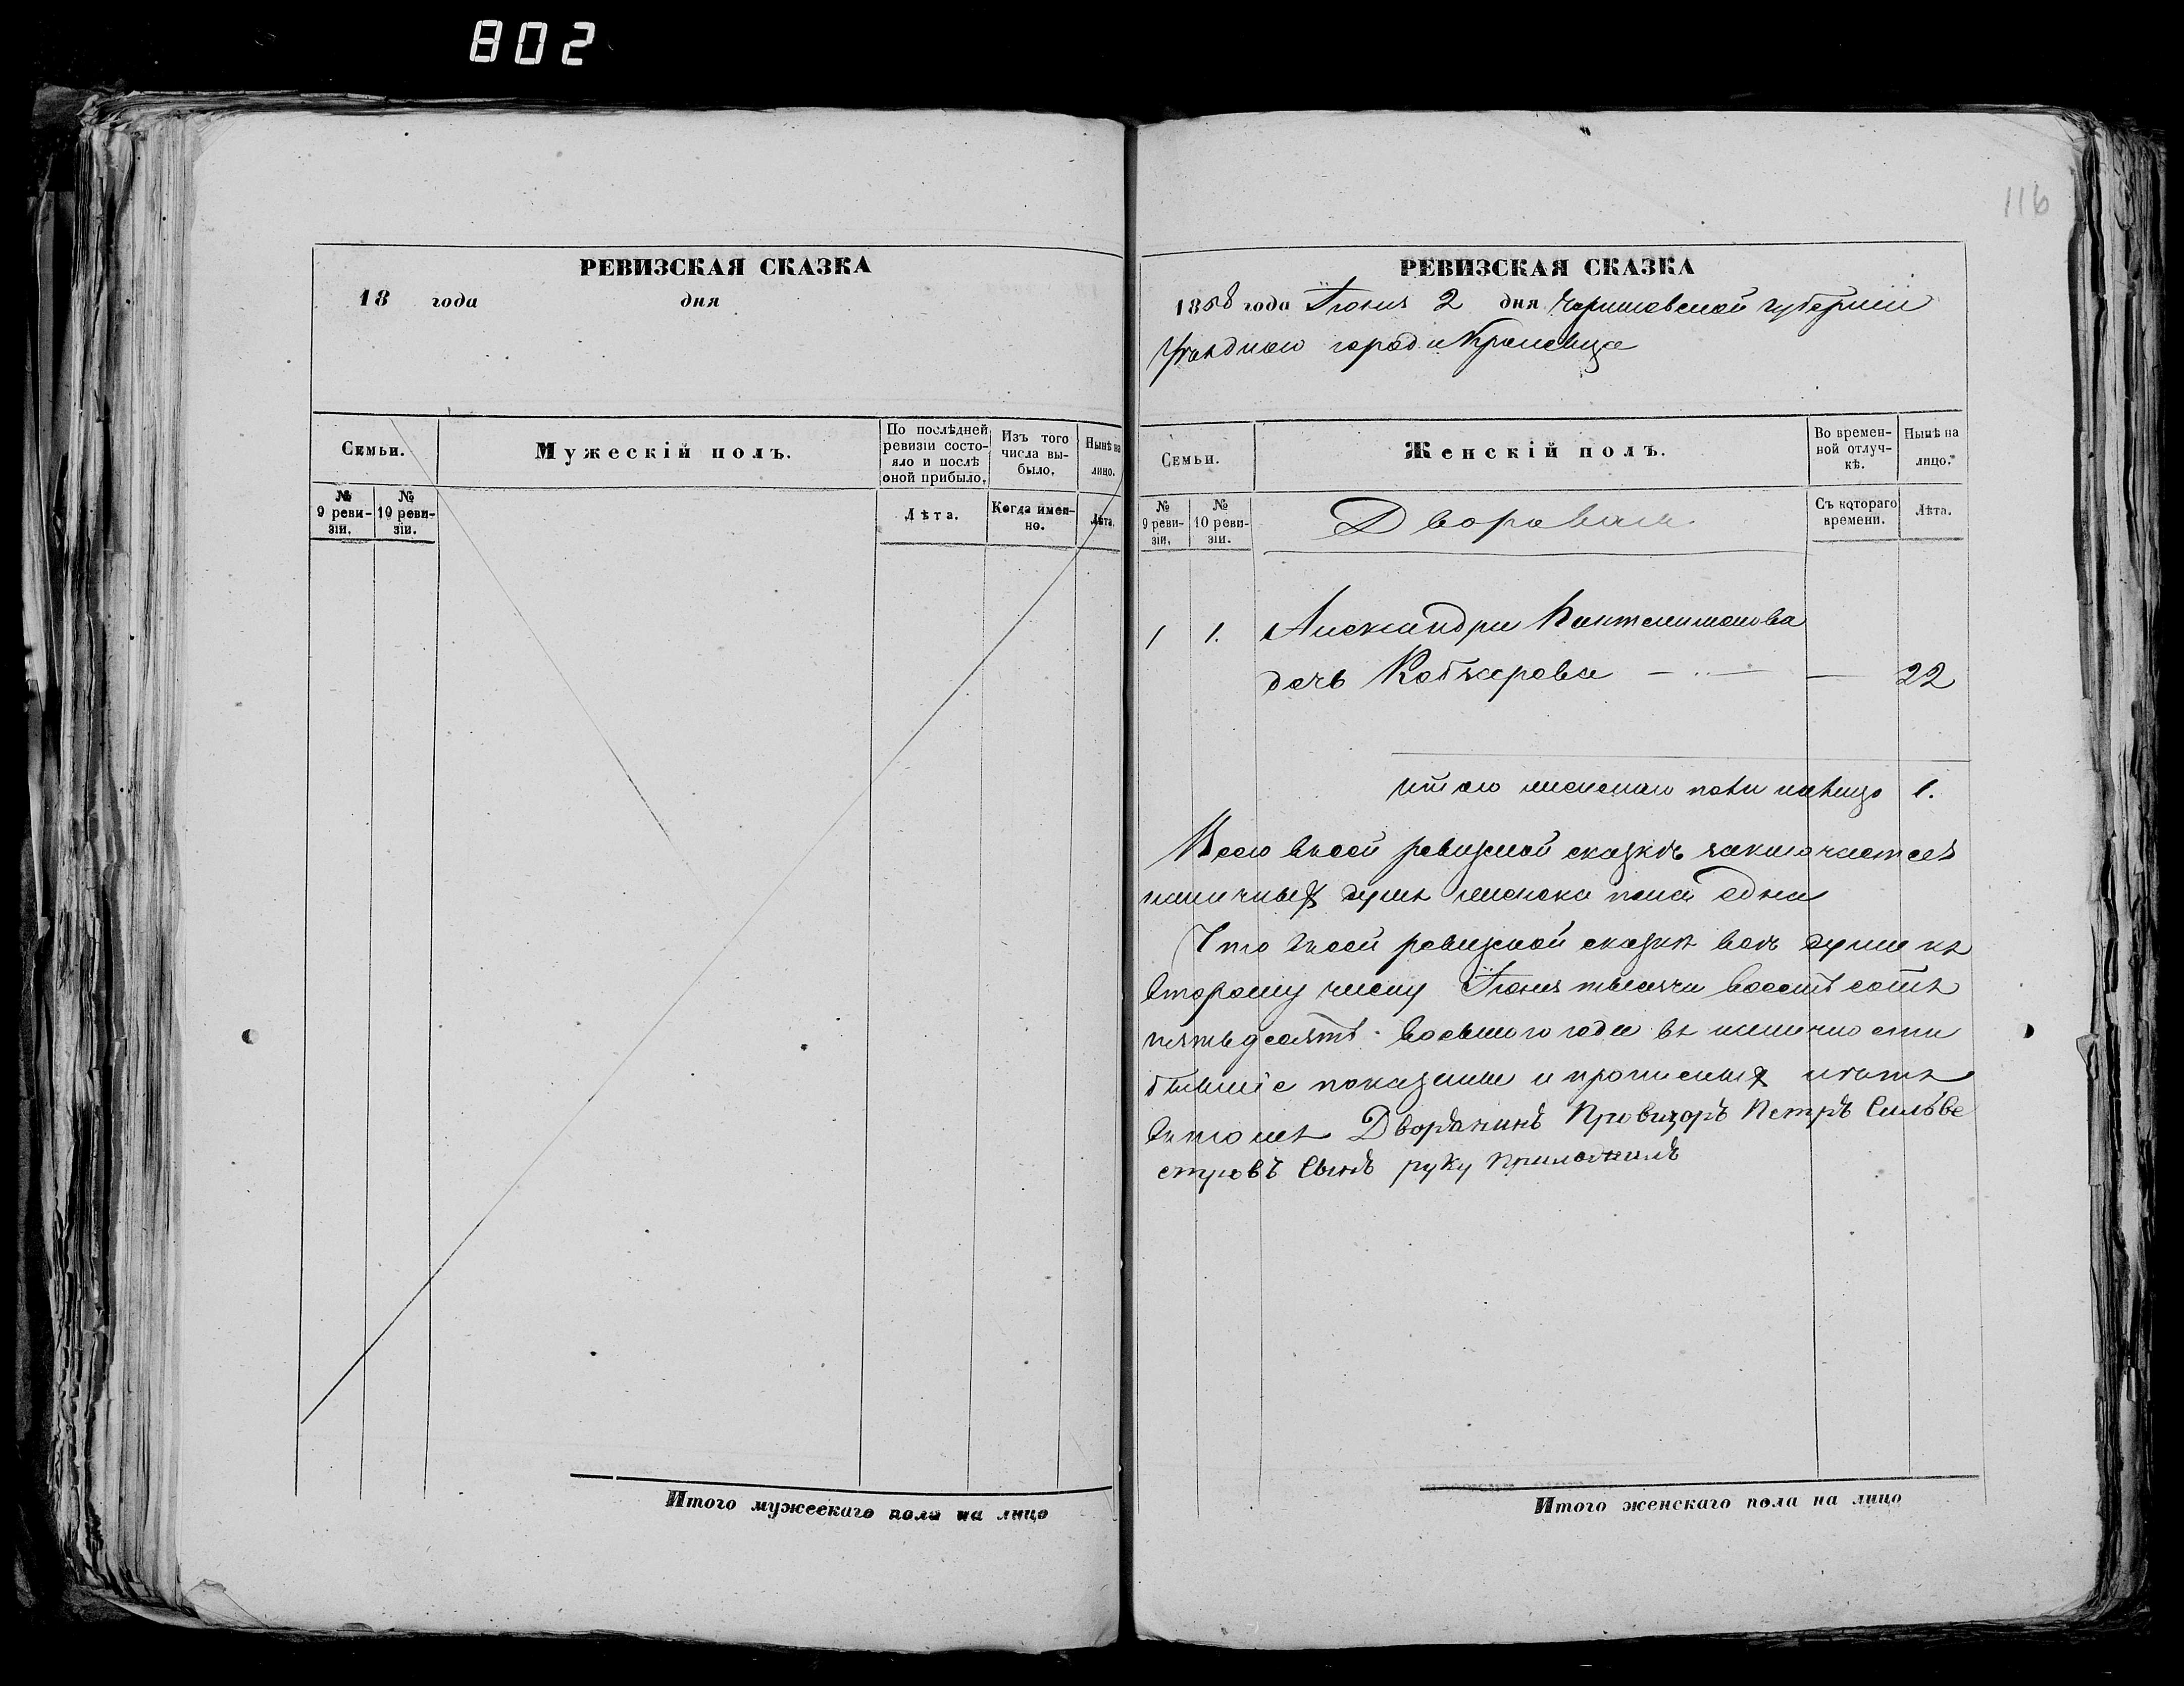 802
116
РЕВИЗСКАЯ СКАЗКА
18 года дня
Семьи.
Мужескій полъ.
По послѣдней ревизіи состо-
яло и послѣ
оной прибыло.
Изъ того
числа вы-
было.
Нынѣ на
лицо.
№
9 реви-
зіи.
№
10 реви-
зіи.
Лѣта.
Когда имен-
но.
Лѣта.
Итого мужескаго пола на лицо
РЕВИЗСКАЯ СКАЗКА
1858 года Іюня 2 дня Черниговской губерніи
Уѣзднаго города Кролевца
Семьи.
Женскій полъ.
Во времен-
ной отлуч-
кѣ.
Нынѣ на
лицо.
№
9 реви-
зіи.
№
10 реви-
зіи.
Дворовая
Съ котораго
времени.
Лѣта.
1 1. Александра Пантелимонова
дочь 22
Итого женскаго пола налицо 1.
Всего въсей ревизской сказкѣ заключается
наличныхъ душъ женска пола одна
Что въсей ревизской сказкѣ всѣ души къ
второму числу Іюня тысяча восемь сотъ
пятьдесятъ восьмого года въ наличности
бывшіе показаны и прописныхъ нѣтъ
Дворянинъ Провизоръ Петръ Сильве
стровъ Сынъ руку приложилъ
Итого женскаго пола на лицо